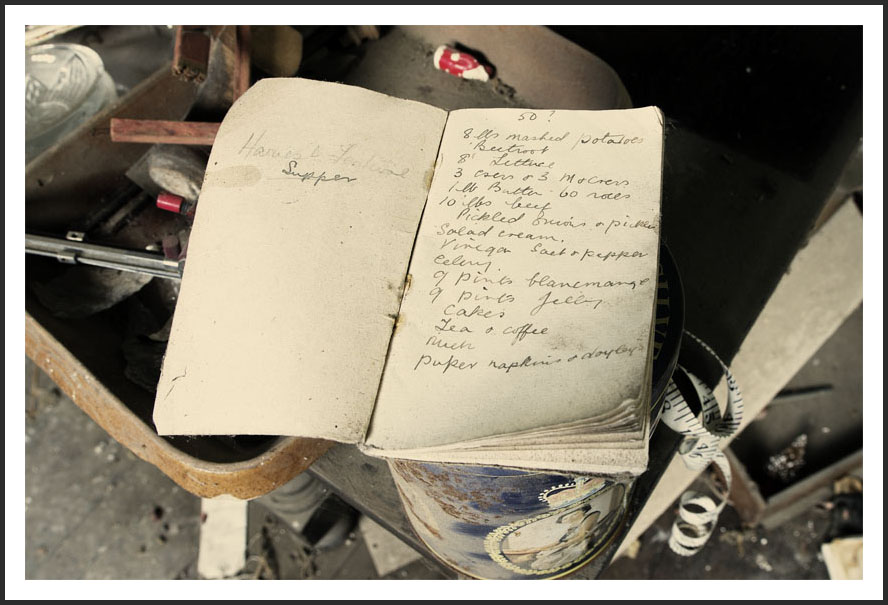 Harvest Festival
Supper
50 ?
8 lbs mashed potatoes
Beetroot
8 Lettuce
3 & 3
1 lb Butter 60
10 lbs beef
Pickled onions &
Salad cream.
Vinegar Salt & pepper
Celery.
9 pints blancmange
9 pints Jelly
Cakes
Tea & coffee
Milk
paper napkins & doyleys